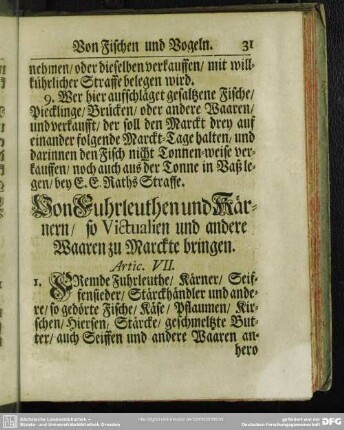 Von Fischen und Vogeln. 31
nehmen/ oder dieselben verkauffen/ mit will-
kührlicher Straffe belegen wird.
9. Wer hier auffschläget gesaltzene Fische/
Piecklinge/ Brücken/ oder andere Waaren/
und verkaufft/ der soll den Marckt drey auf
einander folgende Marckt-Tage halten/ und
darinnen den Fisch nicht Tonnen-weise ver-
kauffen/ noch auch aus der Tonne in Vaß le-
gen/ bey E. E. Raths Straffe.
Von Fuhrleuthen und Kär-
nern/ so Victualien und andere
Waaren zu Marckte bringen.
Artic. VII.
1. FRemde Fuhrleuthe/ Kärner/ Seif-
fensieder/ Stärckhändler und ande-
re/ so gedörte Fische/ Käse/ Pflaumen/ Kir-
schen/ Hiersen/ Stärcke/ geschmeltzte But-
ter/ auch Seiffen und andere Waaren an-
hero
Sächsische Landesbibliothek –
Staats- und Universitätsbibliothek Dresden
gefördert von der
Deutschen Forschungsgemeinschaft
DFG